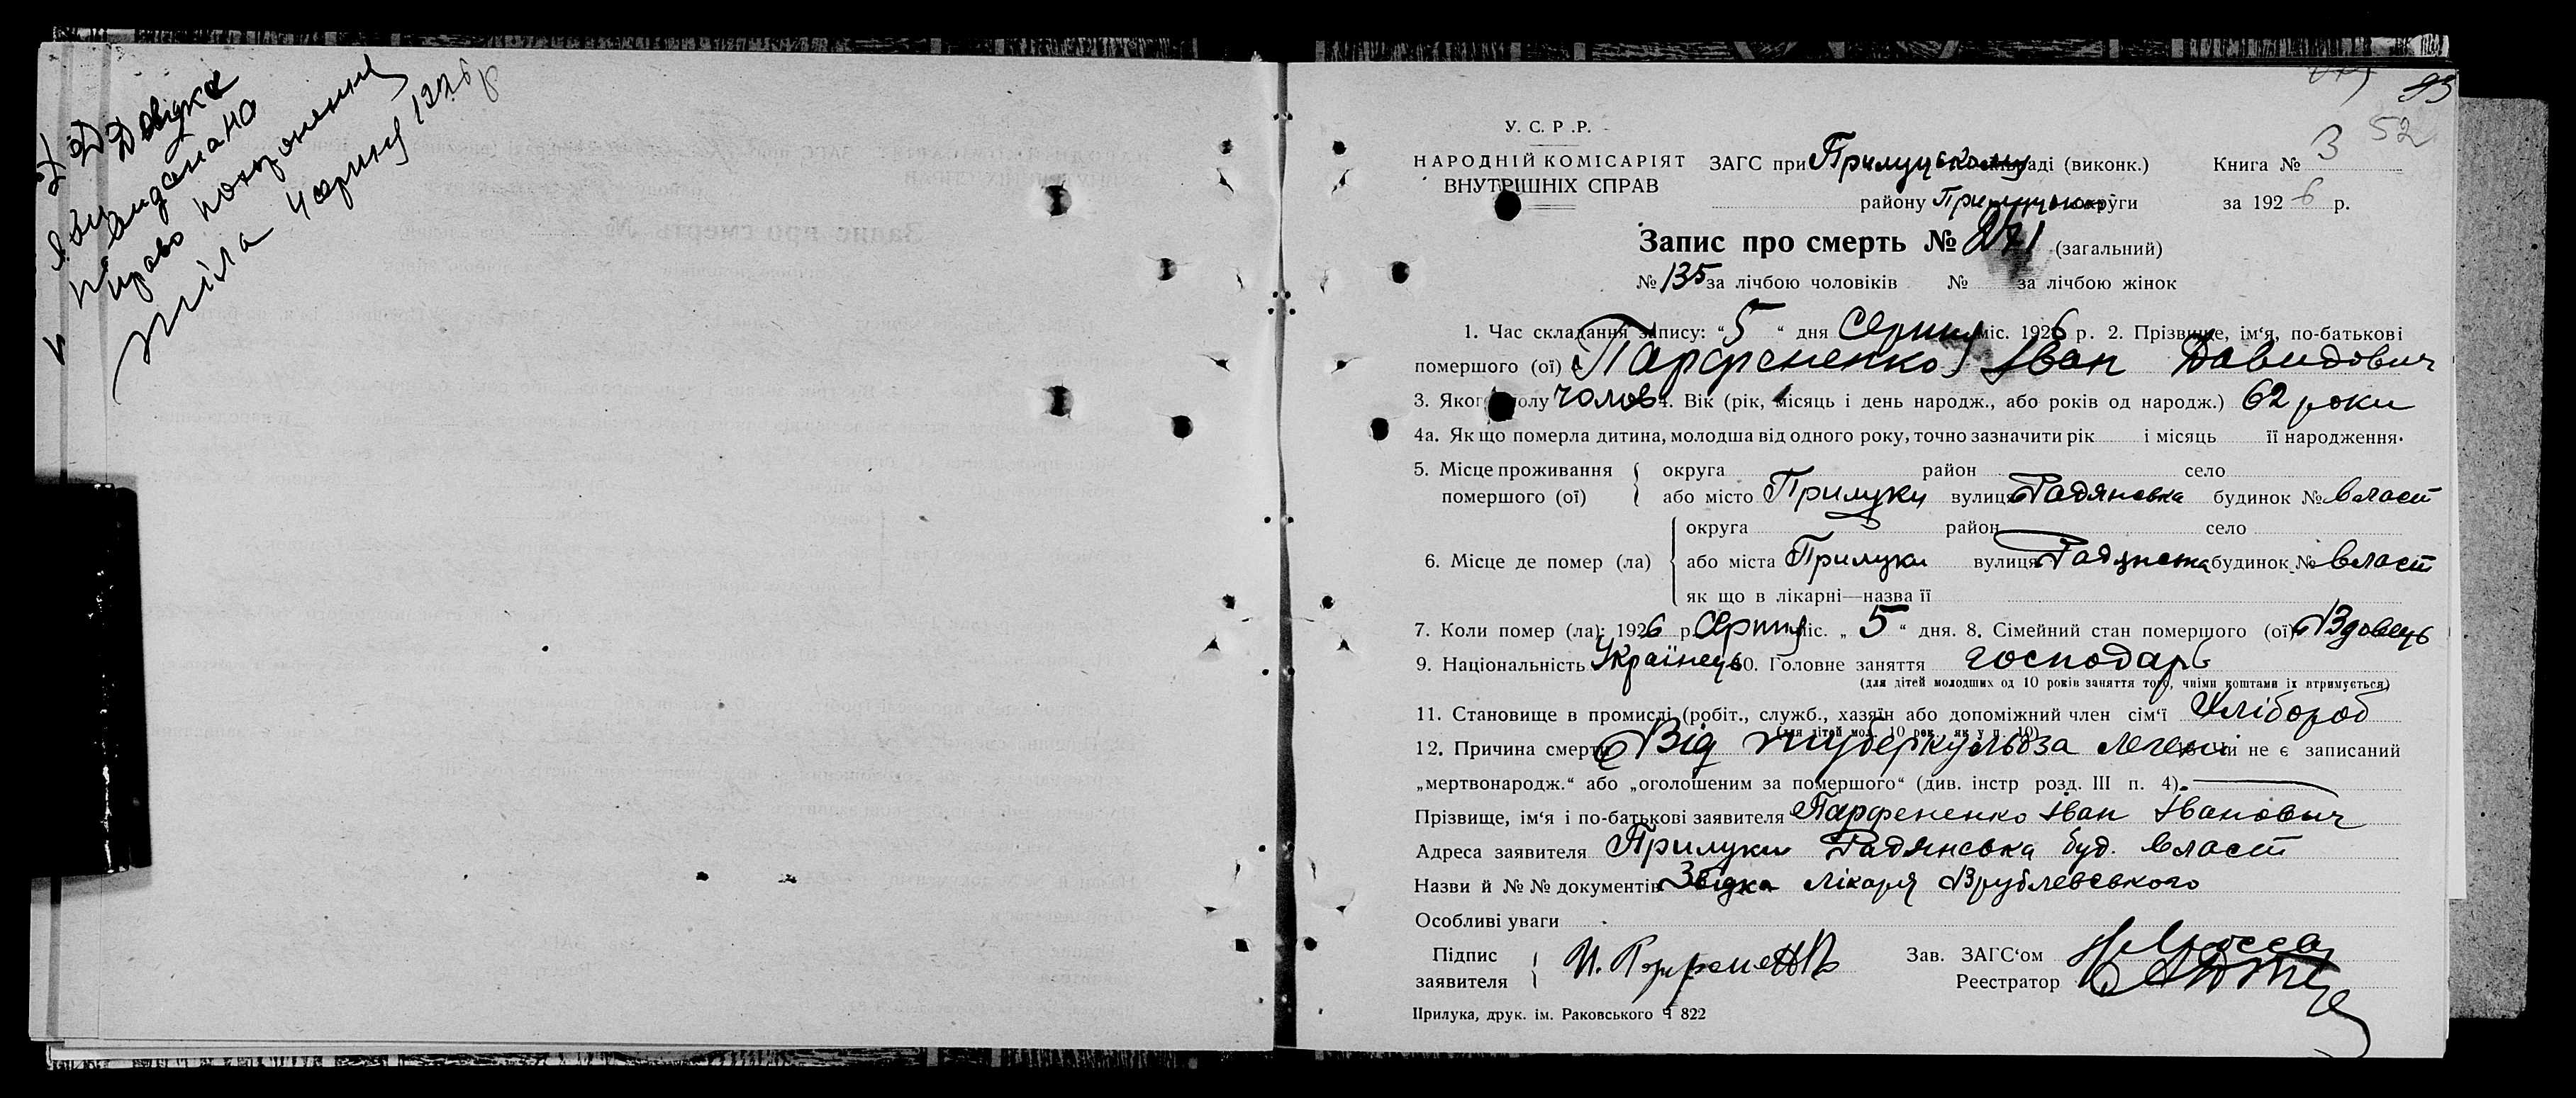 Довідка
видана на
право похоронення
тіла
У. С. Р. Р.
НАРОДНІЙ КОМІСАРІЯТ
ВНУТРІШНІХ СПРАВ
ЗАГС при Прилуцькому раді (виконк.)
району Прилуцької округи
Книга № 3
52
93
за 1926 р.
Запис про смерть № 271 (загальний)
№ 135 за лічбою чоловіків № за лічбою жінок
1. Час складання запису: "5" дня Серпня міс. 1926 р. 2. Прізвище, ім'я, по-батькові
помершого (ої) Парфененко Іван Давидович
3. Якого полу чолов 4. Вік (рік, місяць і день народж., або років од народж.) 62 роки
4а. Як що померла дитина, молодша від одного року, точно зазначити рік і місяць її народження.
5. Місце проживання помершого (ої) { округа район село
або місто Прилуки вулиця Радянська будинок № власн
6. Місце де помер (ла) { округа район село
або міста Прилуки вулиця Радянська будинок № власн
як що в лікарні—назва її
7. Коли помер (ла): 1926 р. Серпня міс. „5“ дня. 8. Сімейний стан помершого (ої) Вдовець
9. Національність Українець 10. Головне заняття господарь
(для дітей молодших од 10 років заняття того, чиїми коштами їх втримується)
11. Становище в промислі (робіт., служб., хазяїн або допоміжний член сім'ї Хлібороб
(для дітей мол. 10 рок., як у п. 10)
12. Причина смерти Від туберкульоза легень чи не є записаний
„мертвонародж.“ або „оголошеним за помершого“ (див. інстр розд. III п. 4).
Прізвище, ім'я і по-батькові заявителя Парфененко Іван Іванович
Адреса заявителя Прилуки Радянська буд. власн
Назви й №№ документів Звідка лікаря Врублевського
Особливі уваги
Підпис
заявителя
Зав. ЗАГС'ом
Реестратор
Прилука, друк. ім. Раковського Ч 822